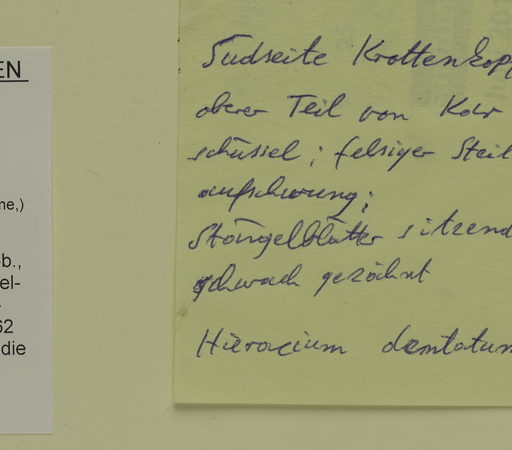 EN
me,)
ob.,
el-
62
die
Südseite Krottenkopf
oberer Teil von Kar
schüssel; felsiger Steil
aufschwung;
Stängelblätter sitzend
schwach gezähnt
Hieracium dentatum